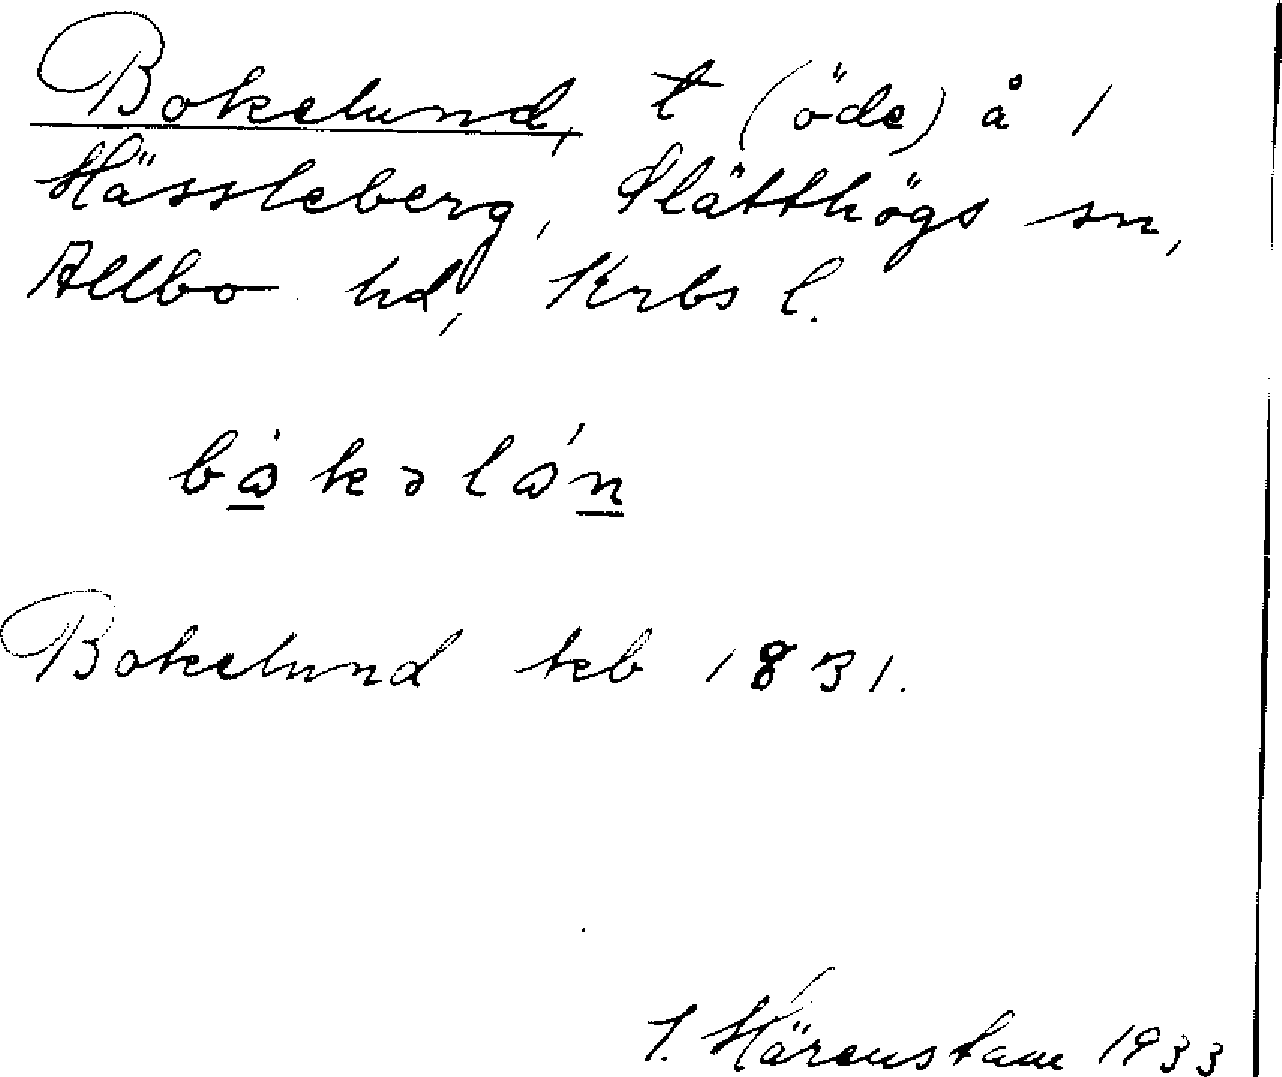 Bokelund, t (öde) å 1
Hässleberg, Slätthögs sn,
Allbo hd, Krbs l.
Bokelund kb 1831.
Härenstam 1933